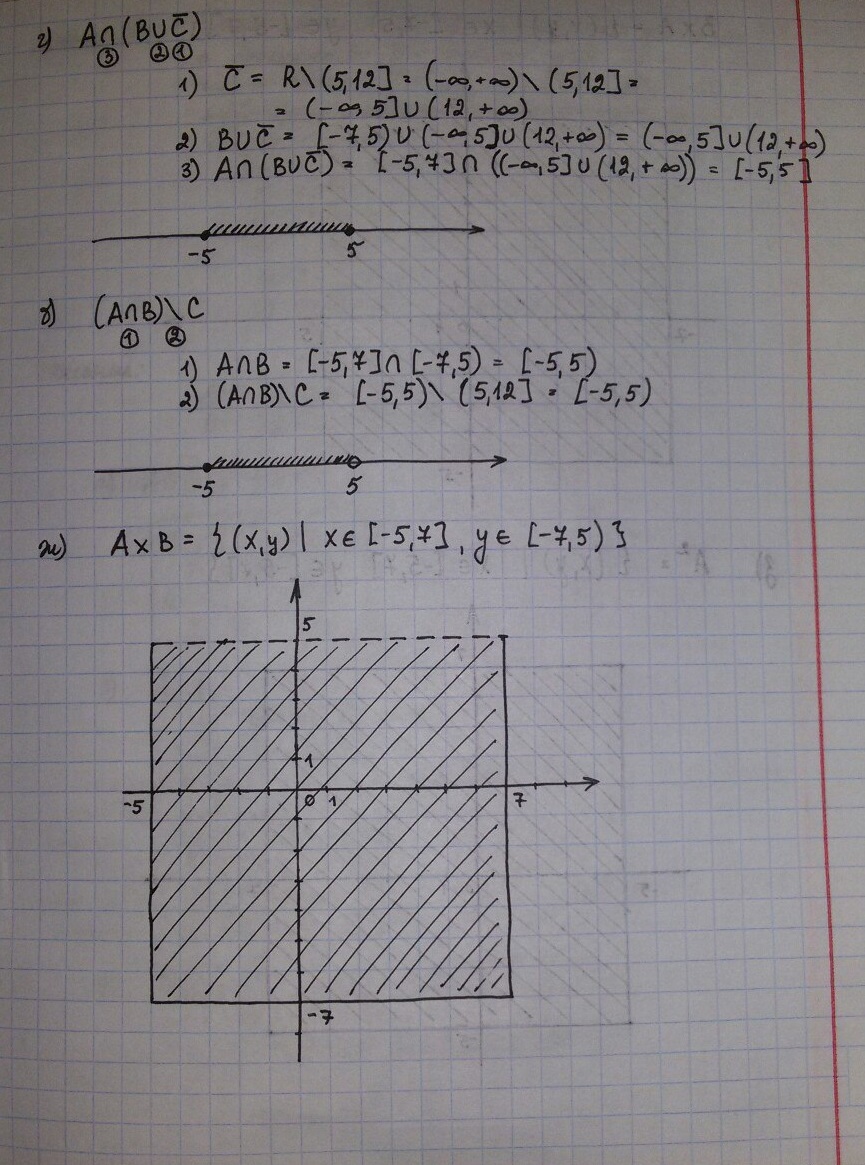 г) A∩(B∪C̅)
③ ②①
1) C̅ = R\(5,12] = (-∞,+∞)\(5,12] =
= (-∞,5]∪(12,+∞)
2) B∪C̅ = [-7,5)∪(-∞,5]∪(12,+∞) = (-∞,5]∪(12,+∞)
3) A∩(B∪C̅) = [-5,7]∩((-∞,5]∪(12,+∞)) = [-5,5]
-5 5
(A∩B)\C
① ②
1) A∩B = [-5,7]∩[-7,5) = [-5,5)
2) (A∩B)\C = [-5,5)\(5,12] = [-5,5)
-5 5
ж) A×B = {(x,y) | x∈[-5,7], y∈[-7,5)}
5
1
-5 0 1 7
-7